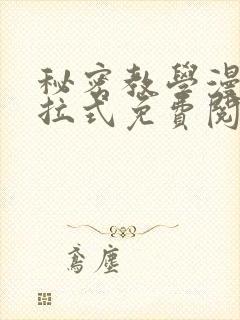 秘密教學漫
拉式免費閱
鸢塵